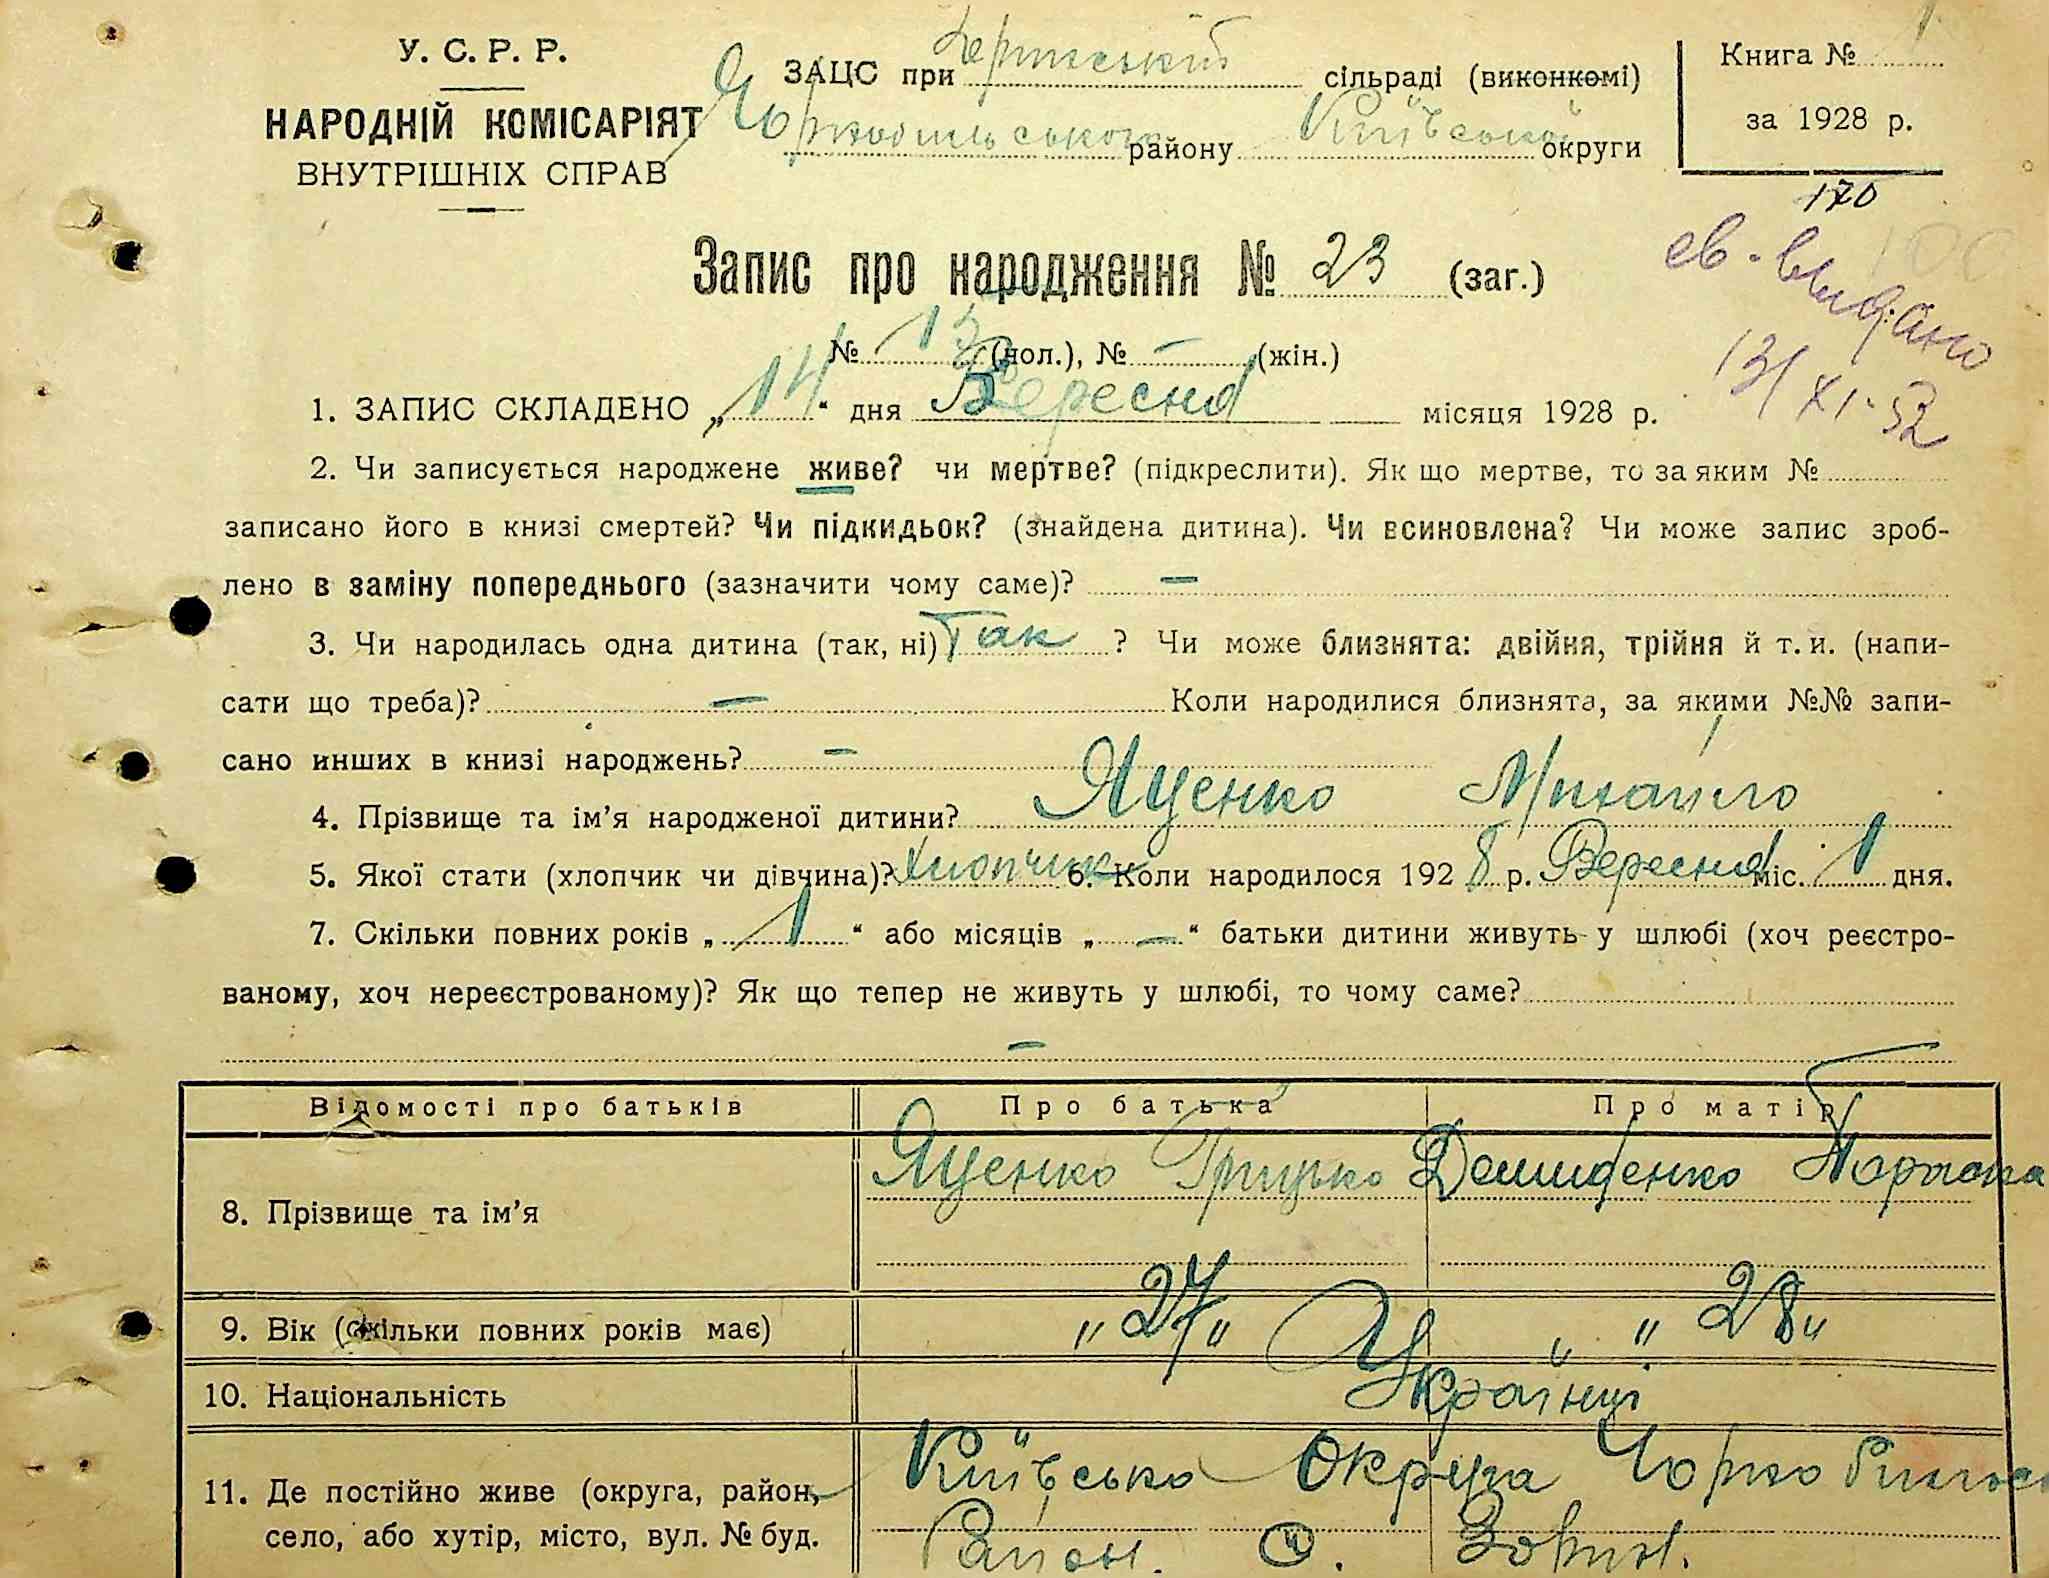 У. С. Р. Р.
НАРОДНІЙ КОМІСАРІЯТ
ВНУТРІШНІХ СПРАВ
ЗАЦС при сільраді (виконкомі)
Чорнобильського району Київської округи
Книга № 1
за 1928 р.
170
св. видано
13/XI-52
Запис про народження № 23 (заг.)
№ 13 (чол.), № – (жін.)
1. ЗАПИС СКЛАДЕНО „14“ дня Вересня місяця 1928 р.
2. Чи записується народжене живе? чи мертве? (підкреслити). Як що мертве, то за яким №
записано його в книзі смертей? Чи підкидьок? (знайдена дитина). Чи всиновлена? Чи може запис зроб-
лено в заміну попереднього (зазначити чому саме)? –
3. Чи народилась одна дитина (так, ні) Так ? Чи може близнята: двійня, трійня й т. и. (напи-
сати що треба)? – Коли народилися близнята, за якими №№ запи-
сано инших в книзі народжень? –
4. Прізвище та ім’я народженої дитини? Яценко Михайло
5. Якої стати (хлопчик чи дівчина)? Хлопчик 6. Коли народилося 1928 р. Вересня міс. 1 дня.
7. Скільки повних років „1“ або місяців „–“ батьки дитини живуть у шлюбі (хоч реєстро-
ваному, хоч нереєстрованому)? Як що тепер не живуть у шлюбі, то чому саме?
–
Відомості про батьків Про батька Про матір
8. Прізвище та ім’я Яценко Грицько Демиденко
9. Вік (скільки повних років має) „27„ „28„
10. Національність Українці
11. Де постійно живе (округа, район,
село, або хутір, місто, вул. № буд.
Київська Округа Чорнобильс
Район. с.